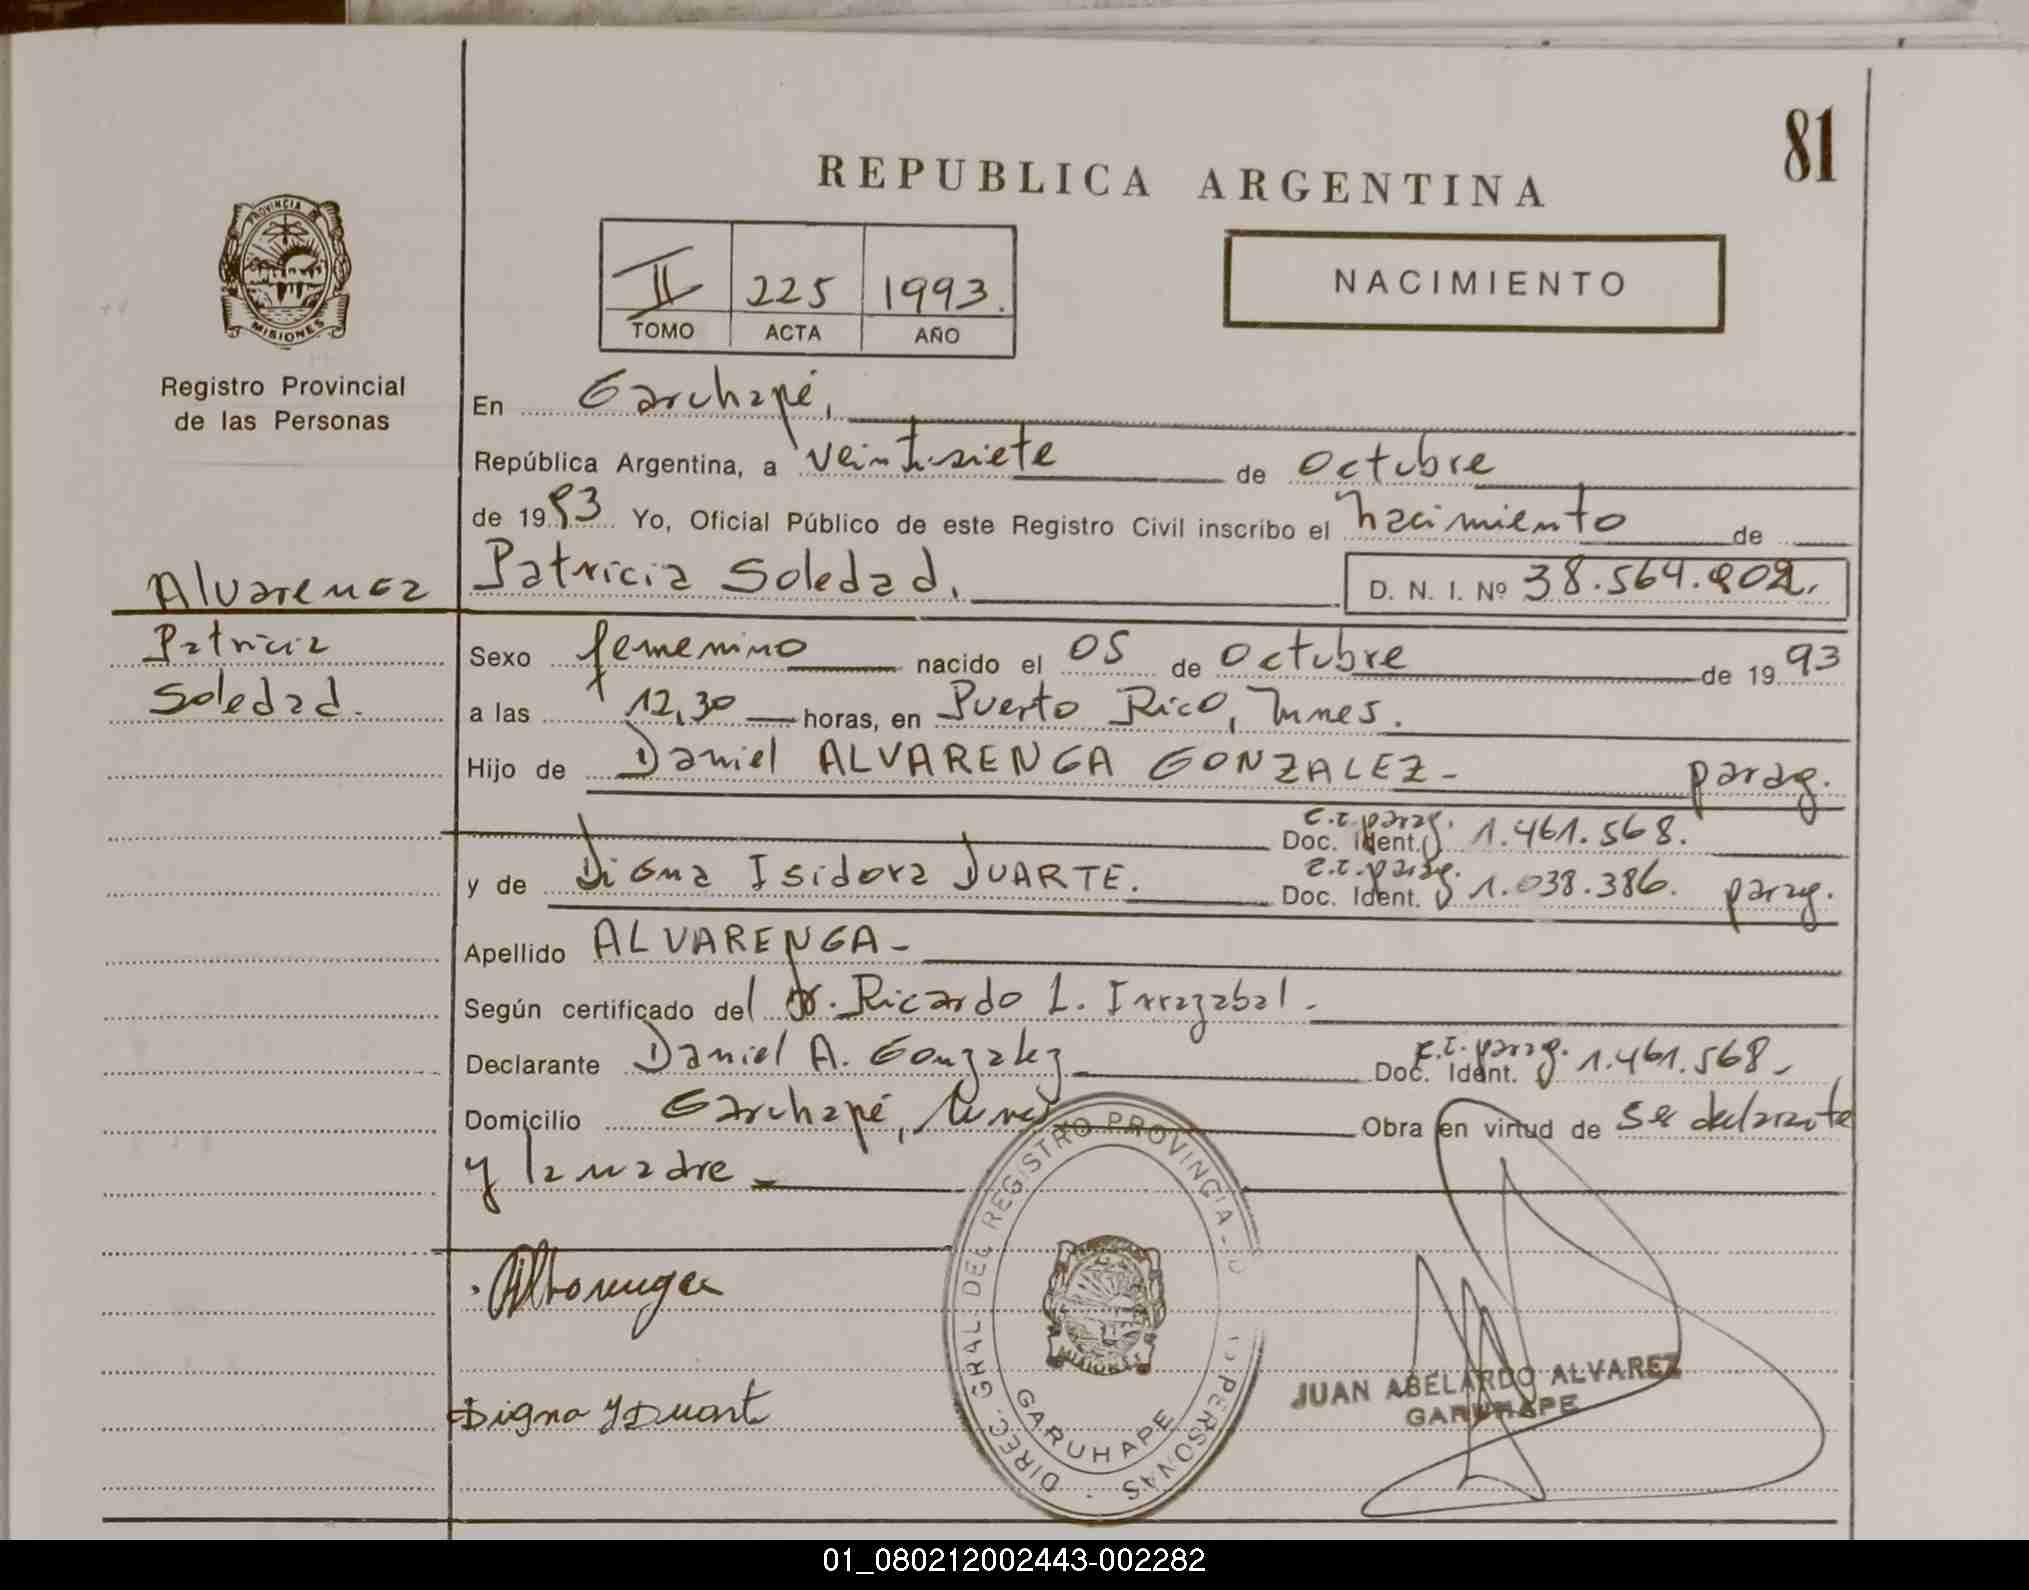 81
REPUBLICA ARGENTINA
PROVINCIA DE
MISIONES
Registro Provincial
de las Personas
II 225 1993.
TOMO ACTA AÑO
NACIMIENTO
En Garuhapé,
República Argentina, a veintisiete de Octubre
de 1993 Yo, Oficial Público de este Registro Civil inscribo el nacimiento de
Alvarenga
Patricia
Soledad.
Patricia Soledad. D. N. I. Nº 38.564.902.
Sexo femenino nacido el 05 de Octubre de 1993
a las 12,30 horas, en Puerto Rico, Mnes.
Hijo de Daniel ALVARENGA GONZALEZ- parag.
C.I. parag.
Doc. Ident. 1.461.568.
C.I. parag.
y de Digna Isidora DUARTE. Doc. Ident. 1.038.386. parag.
Apellido ALVARENGA-
Según certificado del Dr. Ricardo L. Irrazabal.
C.I. parag.
Declarante Daniel A. Gonzalez Doc. Ident. 1.461.568-
Domicilio Garuhapé, Mnes Obra en virtud de ser declarante
y la madre
DIREC. GRAL. DEL REGISTRO PROVINCIA PERSONAS
MISIONES
GARUHAPE
Digna Y Duart
JUAN ABELARDO ALVAREZ
GARUHAPE
01_080212002443-002282